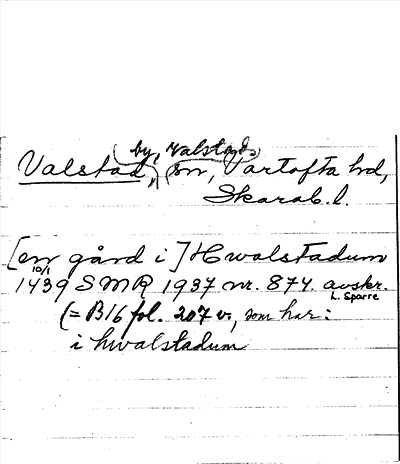 by, Valstads
Valstad, sn, Vartofta hd,
Skarab. l.
[en gård i] Hwalstadum
10/1
1439 SMR 1937 nr. 874. avskr.
L. Sparre
(= B16 fol. 207 v., som har:
i hwalstadum